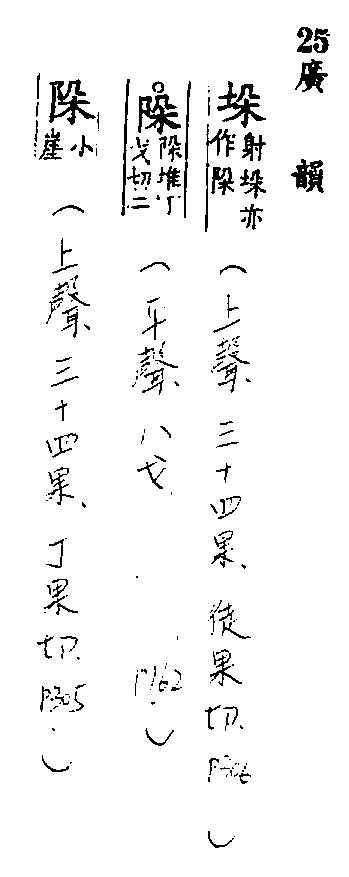 25廣韻
垛 射垛亦作陊
(上聲、三十四果、徒果切、P306)
陊 陊堆丁戈切二
(平聲、八戈、P162)
陊 小崖
(上聲、三十四果、丁果切、P305)